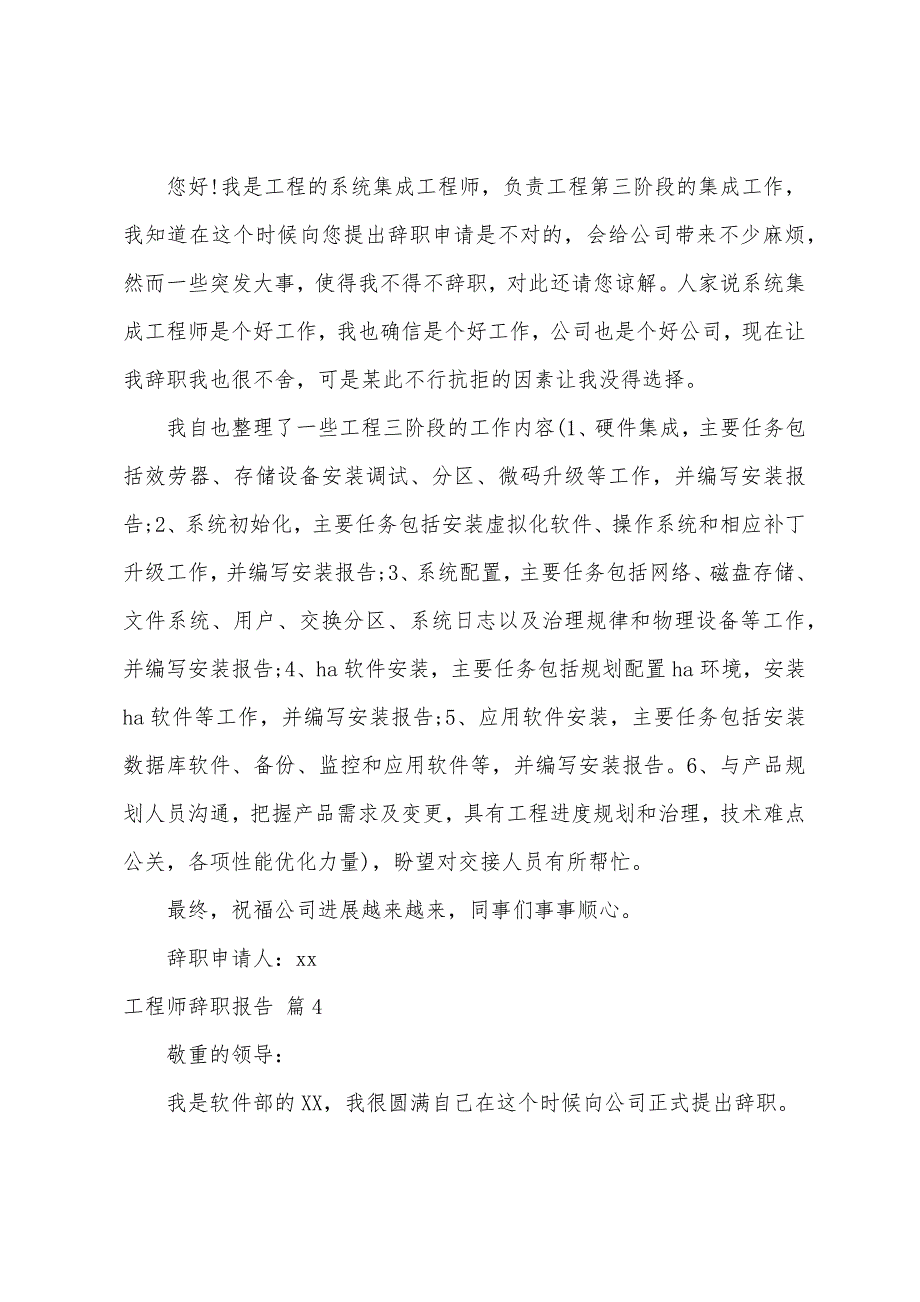 您好!我是工程的系统集成工程师，负责工程第三阶段的集成工作，
我知道在这个时候向您提出辞职申请是不对的，会给公司带来不少麻烦，
然而一些突发大事，使得我不得不辞职，对此还请您谅解。人家说系统集
成工程师是个好工作，我也确信是个好工作，公司也是个好公司，现在让
我辞职我也很不舍，可是某此不行抗拒的因素让我没得选择。
我自也整理了一些工程三阶段的工作内容(1、硬件集成，主要任务包
括效劳器、存储设备安装调试、分区、微码升级等工作，并编写安装报
告;2、系统初始化，主要任务包括安装虚拟化软件、操作系统和相应补丁
升级工作，并编写安装报告;3、系统配置，主要任务包括网络、磁盘存储、
文件系统、用户、交换分区、系统日志以及治理规律和物理设备等工作，
并编写安装报告;4、ha软件安装，主要任务包括规划配置ha环境，安装
ha软件等工作，并编写安装报告;5、应用软件安装，主要任务包括安装
数据库软件、备份、监控和应用软件等，并编写安装报告。6、与产品规
划人员沟通，把握产品需求及变更，具有工程进度规划和治理，技术难点
公关，各项性能优化力量)，盼望对交接人员有所帮忙。
最终，祝福公司进展越来越来，同事们事事顺心。
辞职申请人：xx
工程师辞职报告 篇4
敬重的领导：
我是软件部的XX，我很圆满自己在这个时候向公司正式提出辞职。